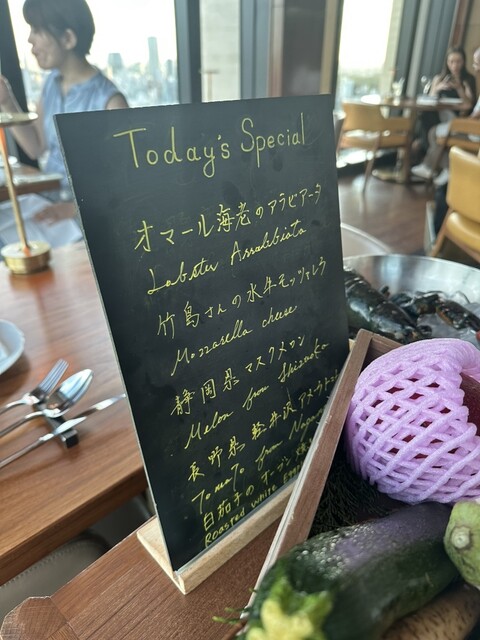 Today's Special
オマール海老のアラビアータ
Lobster Arrabbiata
竹島さんの水牛モッツァレラ
Mozzarella cheese
静岡県 マスクメロン
Melon from Shizuoka
長野県 軽井沢
Tomato from Nagano
白茄子のオーブン焼
Roasted White